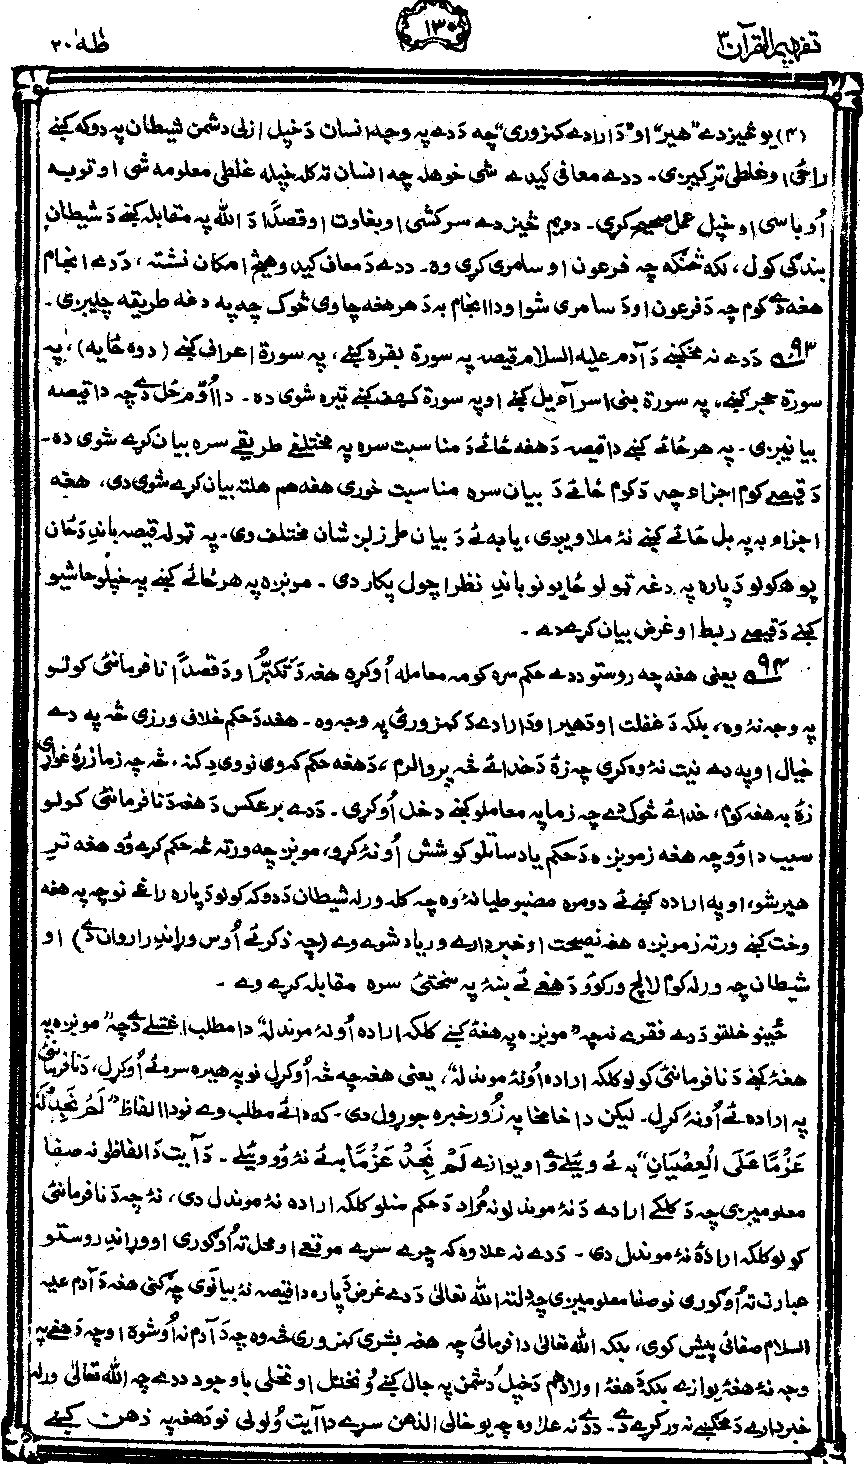 تفهیم القرآن ۳
۱۳۰
طٰهٰ ۲۰
(۴) یو څیز دے "هیر" او "دَ ارادے کمزوری" چه دَ دے په وجه انسان دَ خپل ازلی دشمن شیطان په دوکه کښے
راځی او غلطی ترکیږی۔ ددے معافی کیدے شی خو هله چه انسان ته کله خپله غلطی معلومه شی او توبه
اُوباسی او خپل عمل صحیح کړی۔ دویم څیز دے سرکشی او بغاوت او قصداً دَ الله په مقابله کښے دَ شیطان
بندګی کول، لکه څنګه چه فرعون او سامری کړی وه۔ ددے دَ معاف کیدو هیڅ امکان نشته، دَ دے انجام
هغه دے کوم چه دَ فرعون او دَ سامری شو او دا انجام به دَ هر هغه چا وی څوک چه په دغه طریقه چلیږی۔
۹۳ دَ دے نه مخکښے دَ آدم علیه السلام قیصه په سورة بقره کښے، په سورة اعراف کښے (دوه ځایه)، په
سورة حجر کښے، په سورة بنی اسرآءیل کښے او په سورة کهف کښے تیره شوی ده۔ دا اُوّم ځل دے چه دا قیصه
بیانیږی۔ په هر ځائے کښے دا قیصه دَ هغه ځائے دَ مناسبت سره په مختلفے طریقے سره بیان کړے شوی ده۔
دَ قیصے کوم اجزاء چه دَ کوم ځائے دَ بیان سره مناسبت خوری هغه هم هلته بیان کړے شوی دی، هغه
اجزاء به په بل ځائے کښے نهٔ ملاویږی، یا به ئے دَ بیان طرز لږ شان مختلف وی۔ په ټوله قیصه باندِ دَ ځان
پوهه کولو دَ پاره په دغه ټولو ځایونو باندِ نظر اچول پکار دی۔ مونږه په هر ځائے کښے په خپلو حاشیو
کښے دَ قیصے ربط او غرض بیان کړے دے۔
۹۴ یعنی هغه چه روستو ددے حکم سره کومه معامله اُوکړه هغه دَ تکبّر او دَ قصداً نافرمانئ کولو
په وجه نهٔ وه، بلکه دَ غفلت او دَ هیر او دَ ارادے دَ کمزورئ په وجه وه۔ هغه دَ حکم خلاف ورزی څه په دے
خیال او په دے نیت نهٔ وه کړی چه زهٔ دَ خدائے څه پروا لرم، دَ هغه حکم که وی نو وی دِ کنه، څه چه زما زړهٔ غواړی
زهٔ به هغه کوم، خدائے څوک دے چه زما په معاملو کښے دخل اُوکړی۔ دَ دے برعکس دَ هغه دَ نافرمانئ کولو
سبب دا وو چه هغه زمونږه دَ حکم یاد ساتلو کوشش اُونهٔ کړو، مونږ چه ورته څه حکم کړے وو هغه ترِ
هیر شو، او په اراده کښے ئے دومره مضبوطیا نهٔ وه چه کله ورله شیطان دَ دوکه کولو دَ پاره راغے نو چه په هغه
وخت کښے ورته زمونږه هغه نصیحت او خبردارے ور یاد شوے وے (چه ذکر ئے اُوس وړاندِ راروان دے) او
شیطان چه ورله کوم لالچ ورکوو دَ هغے ئے ښهٔ په سختئ سره مقابله کړے وے۔
ځینو خلقو دَ دے فقرے نه چه "مونږه په هغهٔ کښے کلکه اراده اُونهٔ موندله" دا مطلب اغستلے دے چه "مونږه په
هغهٔ کښے دَ نافرمانئ کولو کلکه اراده اُونهٔ موندله"، یعنی هغه چه څه اُوکړل نو په هیره سره ئے اُوکړل، دَ نافرمانئ
په اراده ئے اُونهٔ کړل۔ لیکن دا خامخا په زور خبره جوړول دی۔ که دائے مطلب وے نو دا الفاظ "لَمْ نَجِدْ لَهٗ
عَزْمًا عَلَی الْعِصْیَانِ" به ئے وئیلے وے او یوازے لَمْ نَجِدْ عَزْمًا به ئے نهٔ وو وئیلے۔ دَ آیت دَ الفاظو نه صفا
معلومیږی چه دَ کلکے ارادے دَ نهٔ موندلو نه مُراد دَ حکم منلو کلکه اراده نهٔ موندل دی، نهٔ چه دَ نافرمانئ
کولو کلکه ارادهٔ نهٔ موندل دی۔ دَ دے نه علاوه که چرے سړے موقعے او محل ته اُوګوری او وړاندِ روستو
عبارت ته اُوګوری نو صفا معلومیږی چه دلته الله تعالیٰ دَ دے غرض دَ پاره دا قیصه نهٔ بیانوی چه ګنی هغه دَ آدم علیه
السلام صفائی پیش کوی، بلکه الله تعالیٰ دا فرمائی چه هغه بشری کمزوری څه وه چه دَ آدم نه اُوشوه او چه دَ هغے په
وجه نهٔ هغهٔ یوازے بلکهٔ دَ هغهٔ اولاد هم دَ خپل دُشمن په جال کښے وُنختل او نختلی باوجود ددے چه الله تعالیٰ ورله
خبردارے دَ مخکښے نه ورکړے دے۔ ددے نه علاوه چه یو خالی الذهن سړے دا آیت وُلولی نو دَ هغه په ذهن کښے